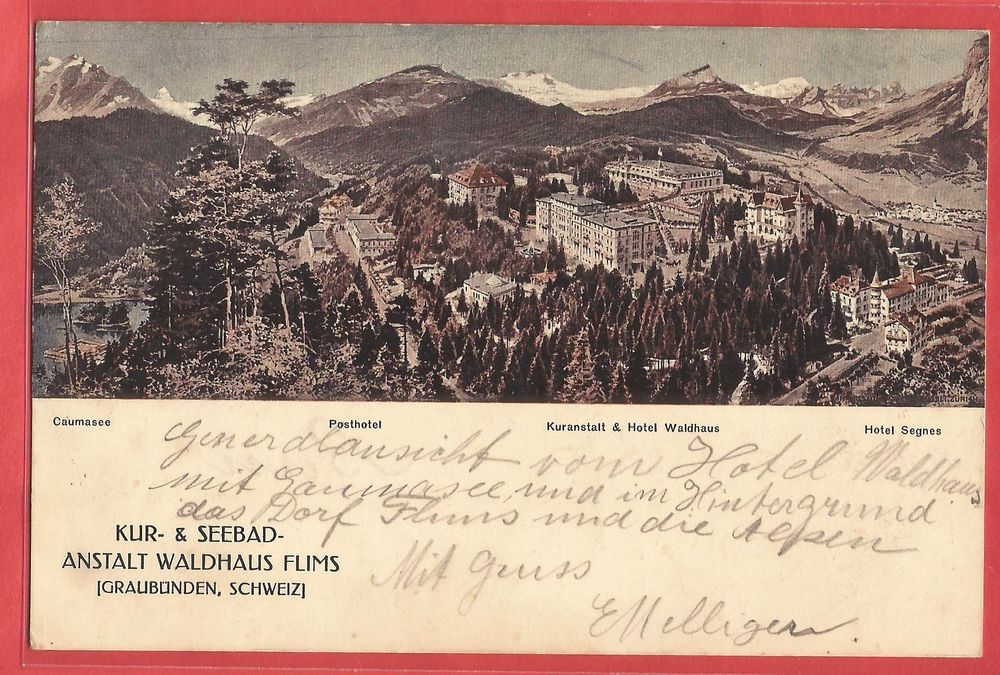 Caumasee Posthotel Kuranstalt & Hotel Waldhaus Hotel Segnes
Generalansicht vom Hotel Waldhaus
mit Caumasee und im Hintergrund
das Dorf Flims und die Alpen
KUR- & SEEBAD-
ANSTALT WALDHAUS FLIMS
[GRAUBÜNDEN, SCHWEIZ]
Mit Gruss